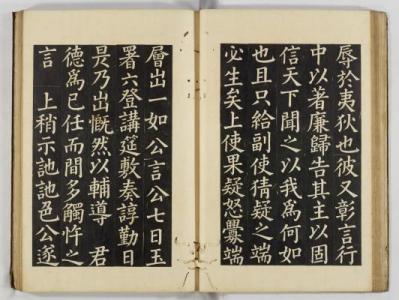 辱於夷狄也彼又彰言行
中以著廉歸告其主以固
信天下聞之以我爲何如
也且只給副使猜疑之端
必生矣上使果疑怒釁端
層出一如公言公七日玉
署六登講筵敷奏諄勤日
昃乃出慨然以輔導君
德爲已任而間多觸忤之
言上稍示訑訑色公遂